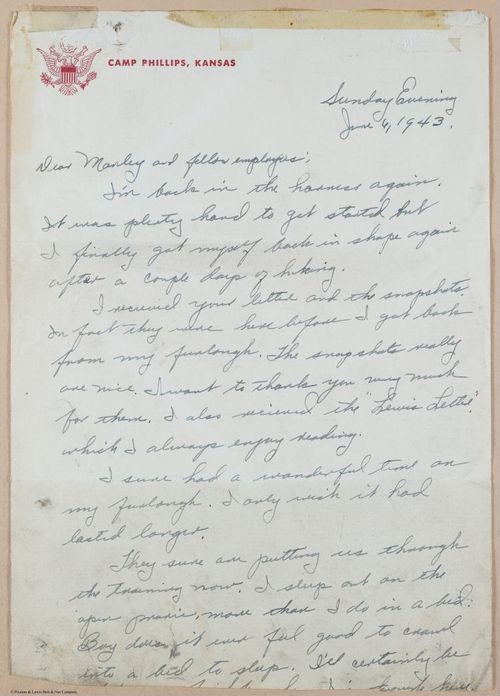 CAMP PHILLIPS, KANSAS
Sunday Evening
June 6, 1943.
Dear Manley and fellow employees;
I'm back in the harness again.
It was plenty hard to get started but
I finally got myself back in shape again
after a couple days of hiking.
I received your letter and the snapshots.
In fact they were here before I got back
from my furlough. The snapshots really
are nice. I want to thank you very much
for them. I also recieved the "Lewis Letter"
which I always enjoy reading.
I sure had a wonderful time on
my furlough. I only wish it had
lasted longer.
They sure are putting us through
the training now. I sleep out on the
open prairie, more than I do in a bed.
Boy does it ever feel good to crawl
into a bed to sleep. I'll certainly be